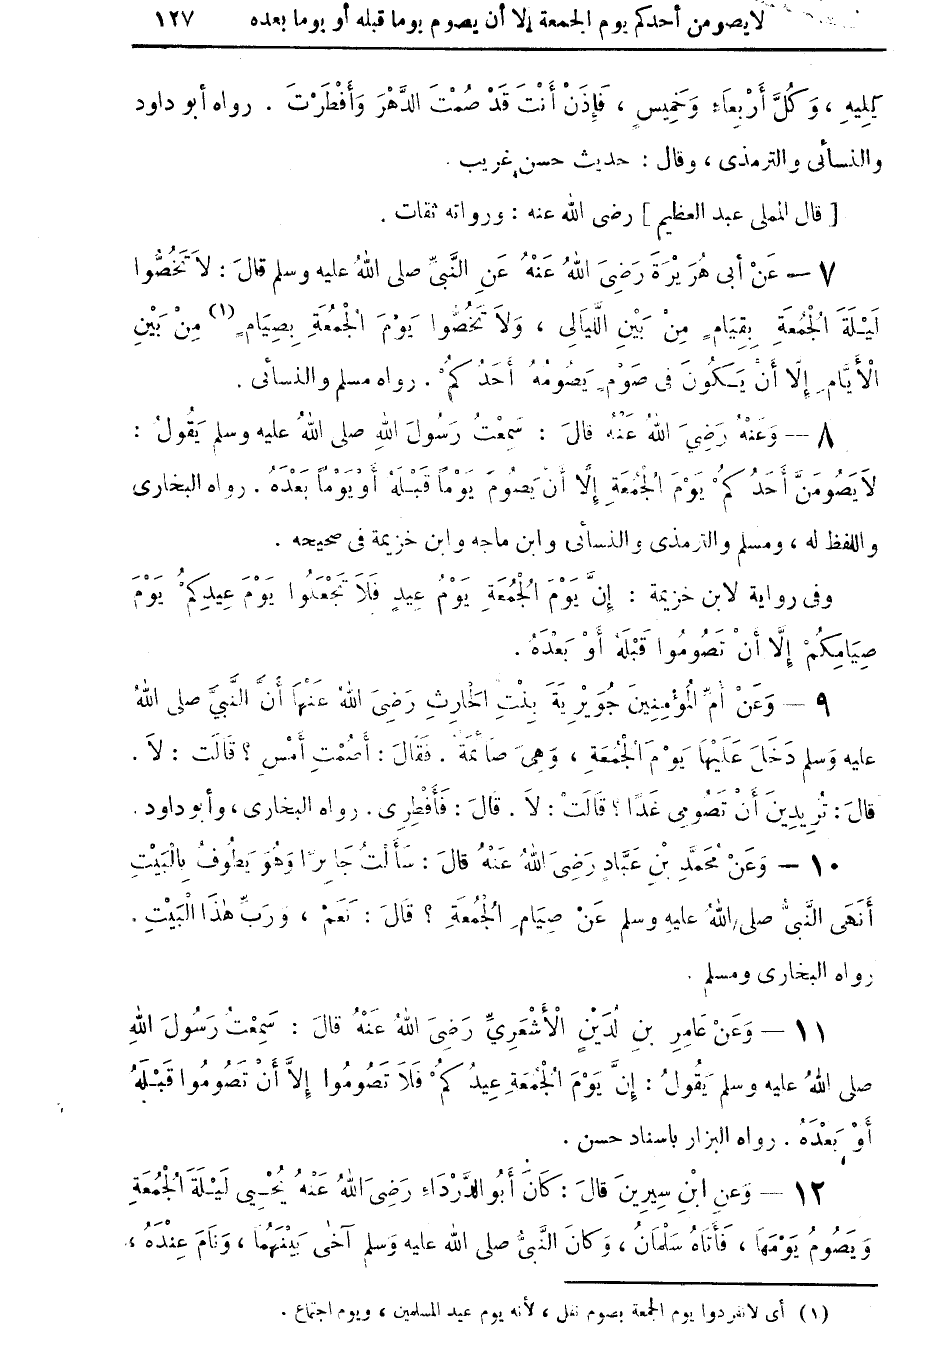 لا يصومن أحدكم يوم الجمعة إلا أن يصوم يوما قبله أو يوما بعده ١٢٧
يَلِيهِ ، وَكُلَّ أَرْبِعَاءَ وَخَمِيسٍ ، فَإِذَنْ أَنْتَ قَدْ صُمْتَ الدَّهْرَ وَأَفْطَرْتَ . رواه أبو داود
والنسائى والترمذى ، وقال : حديث حسن غريب .
[ قال المملى عبد العظيم ] رضى الله عنه : ورواته ثقات .
٧ — عَنْ أبى هُرَيْرَةَ رَضِىَ اللهُ عَنْهُ عَنِ النَّبِىِّ صلى اللهُ عليه وسلم قالَ : لاَ تَخُصُّوا
لَيْلَةَ الْجُمُعَةِ بِقِيَامٍ مِنْ بَيْنِ اللَّيَالِى ، وَلاَ تَخُصُّوا يَوْمَ الْجُمُعَةِ بِصِيَامٍ (١) مِنْ بَيْنِ
الْأَيَّامِ إِلَّا أَنْ يَكُونَ فى صَوْمٍ يَصُومُهُ أَحَدُكُمْ . رواه مسلم والنسائى .
٨ — وَعَنْهُ رَضِيَ اللهُ عَنْهُ قالَ : سَمِعْتُ رَسُولَ اللهِ صلى اللهُ عليه وسلم يَقُولُ :
لاَ يَصُومَنَّ أَحَدُكُمْ يَوْمَ الْجُمُعَةِ إِلَّا أَنْ يَصُومَ يَوْمًا قَبْلَهُ أَوْ يَوْمًا بَعْدَهُ . رواه البخارى
واللفظ له ، ومسلم والترمذى والنسائى وابن ماجه وابن خزيمة فى صحيحه .
وفى رواية لابن خزيمة : إِنَّ يَوْمَ الْجُمُعَةِ يَوْمُ عِيدٍ فَلاَ تَجْعَلُوا يَوْمَ عِيدِكُمْ يَوْمَ
صِيَامِكُمْ إِلَّا أَنْ تَصُومُوا قَبْلَهُ أَوْ بَعْدَهُ .
٩ — وَعَنْ أُمِّ الْمُؤْمِنِينَ جُوَيْرِيَةَ بِنْتِ الْحَارِثِ رَضِىَ اللهُ عَنْهَا أَنَّ النَّبِيَّ صلى اللهُ
عليه وَسلم دَخَلَ عَلَيْهَا يَوْمَ الْجُمُعَةِ ، وَهِىَ صَائمَةٌ . فَقَالَ : أَصُمْتِ أَمْسِ ؟ قَالَت : لاَ .
قالَ : تُرِيدِينَ أَنْ تَصُومِى غَدًا ؟ قَالَتْ : لاَ . قالَ : فَأَفْطِرِى . رواه البخارى ، وأبو داود .
١٠ — وَعَنْ مُحَمَّدِ بْنِ عَبَّادٍ رَضِىَ اللهُ عَنْهُ قالَ : سَأَلْتُ جَابِرًا وَهُوَ يَطُوفُ بِالْبَيْتِ
أَنَهَى النَّبىُّ صلى اللهُ عليه وسلم عَنْ صِيَامِ الْجُمُعَةِ ؟ قَالَ : نَعَمْ ، وَرَبِّ هٰذَا الْبَيْتِ .
رواه البخارى ومسلم .
١١ — وَعَنْ عَامِرِ بنِ لُدَيْنٍ الْأَشْعَرِيِّ رَضِىَ اللهُ عَنْهُ قالَ : سَمِعْتُ رَسُولَ اللهِ
صلى اللهُ عليه وسلم يَقُولُ : إِنَّ يَوْمَ الْجُمُعَةِ عِيدُكُمْ فَلاَ تَصُومُوا إِلاَّ أَنْ تَصُومُوا قَبْلَهُ
أَوْ بَعْدَهُ . رواه البزار باسناد حسن .
١٢ — وَعَنِ ابْنِ سِيرِينَ قالَ : كَانَ أَبُو الدَّرْدَاءِ رَضِىَ اللهُ عَنْهُ يُحْيِى لَيْلَةَ الْجُمُعَةِ
وَيَصُومُ يَوْمَهَا ، فَأَتَاهُ سَلْمَانُ ، وَكانَ النَّبىُّ صلى الله عليه وَسلم آخَى بَيْنَهُمَا ، وَنَامَ عِنْدَهُ ،
(١) أى لا تفردوا يوم الجمعة بصوم نفل ، لأنه يوم عيد المسلمين ، ويوم اجتماع .